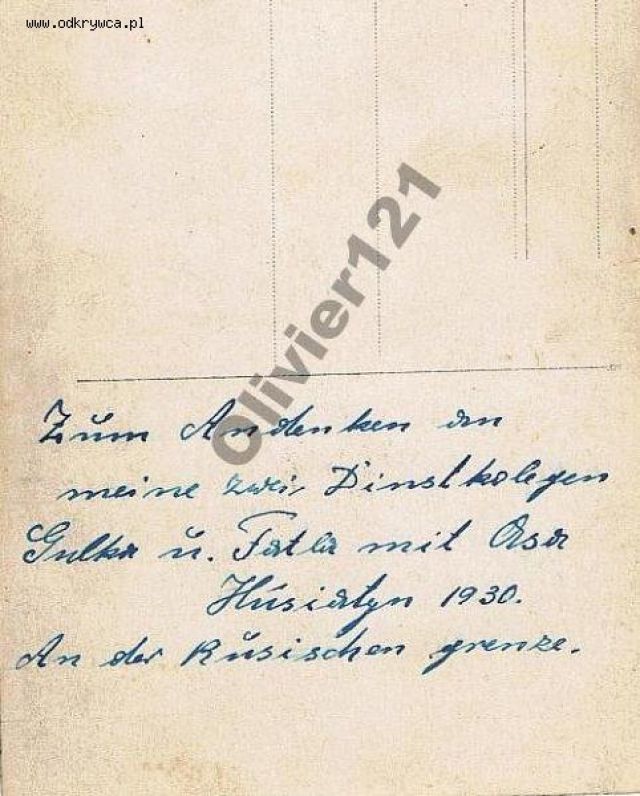 www.odkrywca.pl
Olivier121
Zum Andenken an
meine zwei Dinstkolegen
Gulka u. Fatla mit Asa
Húsiatyn 1930.
An der Rusischen grenze.